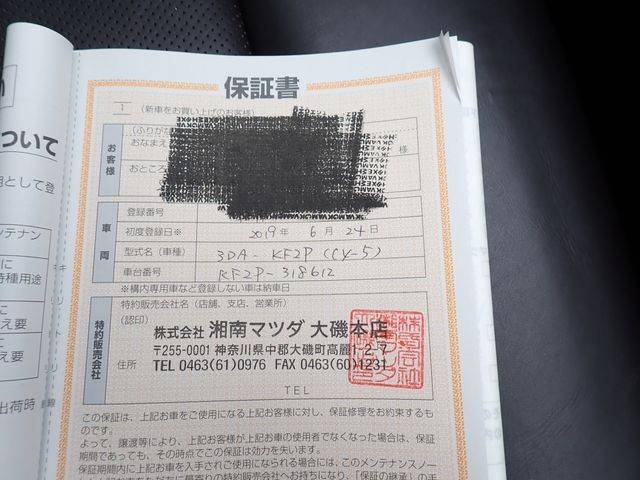 保証書
1 (新車をお買い上げのお客様)
お客様
(ふりがな
おなまえ
様
おところ
車両
登録番号
初度登録日※ 2019年 6月 24日
型式名(車種) 3DA-KF2P (CX-5)
車台番号 KF2P-318612
※構内専用車など登録しない車は納車日
特約販売会社
特約販売会社名(店舗、支店、営業所)
(認印)
株式会社 湘南マツダ 大磯本店
〒255-0001 神奈川県中郡大磯町高麗1-2-7
住所 TEL 0463(61)0976 FAX 0463(60)1231
TEL
この保証は、上記お車をご使用になる上記お客様に対し、保証修理をお約束するも
のです。
よって、譲渡等により、上記お客様が上記お車の使用者でなくなった場合は、保証
期間であっても、その時点でこの保証は効力を失います。
保証期間内に上記お車を入手されご使用になられる場合には、このメンテナンスノー
ついて
用として登
メンテナン
に
特種用途
に
え要
に
え要
出荷時